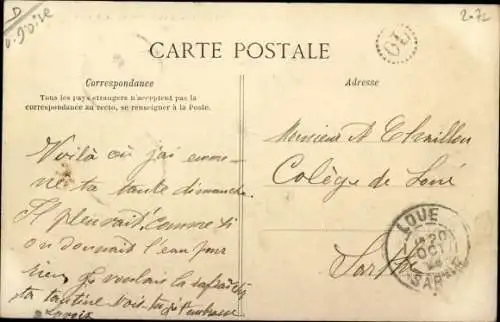 D
v. d'oise
2-72
CARTE POSTALE
Correspondance
Tous les pays étrangers n'acceptent pas la
correspondance au recto, se renseigner à la Poste.
Voilà où j'ai emme-
née ta tante dimanche.
Il pleuvait comme si
on donnait l'eau pour
rien. Je voulais la
ta tantine Vois-tu je t'embrasse
Adresse
Monsieur A
Colège de Loué
Sarthe
LOUE
20
OCT
SARTHE